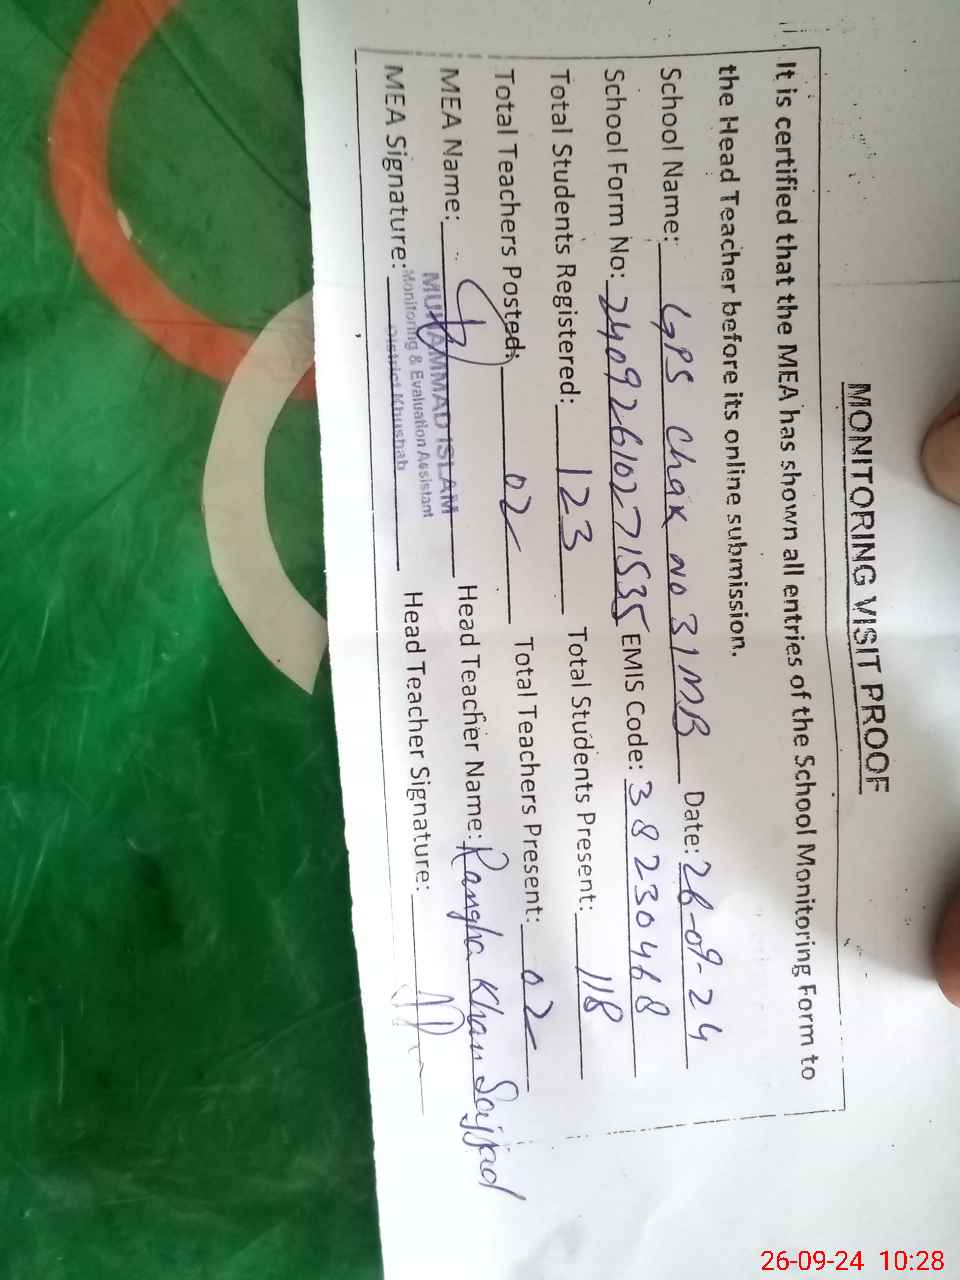 MONITORING VISIT PROOF
It is certified that the MEA has shown all entries of the School Monitoring Form to
the Head Teacher before its online submission.
School Name: GPS Chak No 31 MB Date: 26-09-24
School Form No: 24092610271535 EMIS Code: 38230468
Total Students Registered: 123 Total Students Present: 118
Total Teachers Posted: 02 Total Teachers Present: 02
MEA Name: MUHAMMAD ISLAM Head Teacher Name: Rangha Khan Sajjad
Monitoring & Evaluation Assistant
District Khushab
MEA Signature: Head Teacher Signature:
26-09-24 10:28